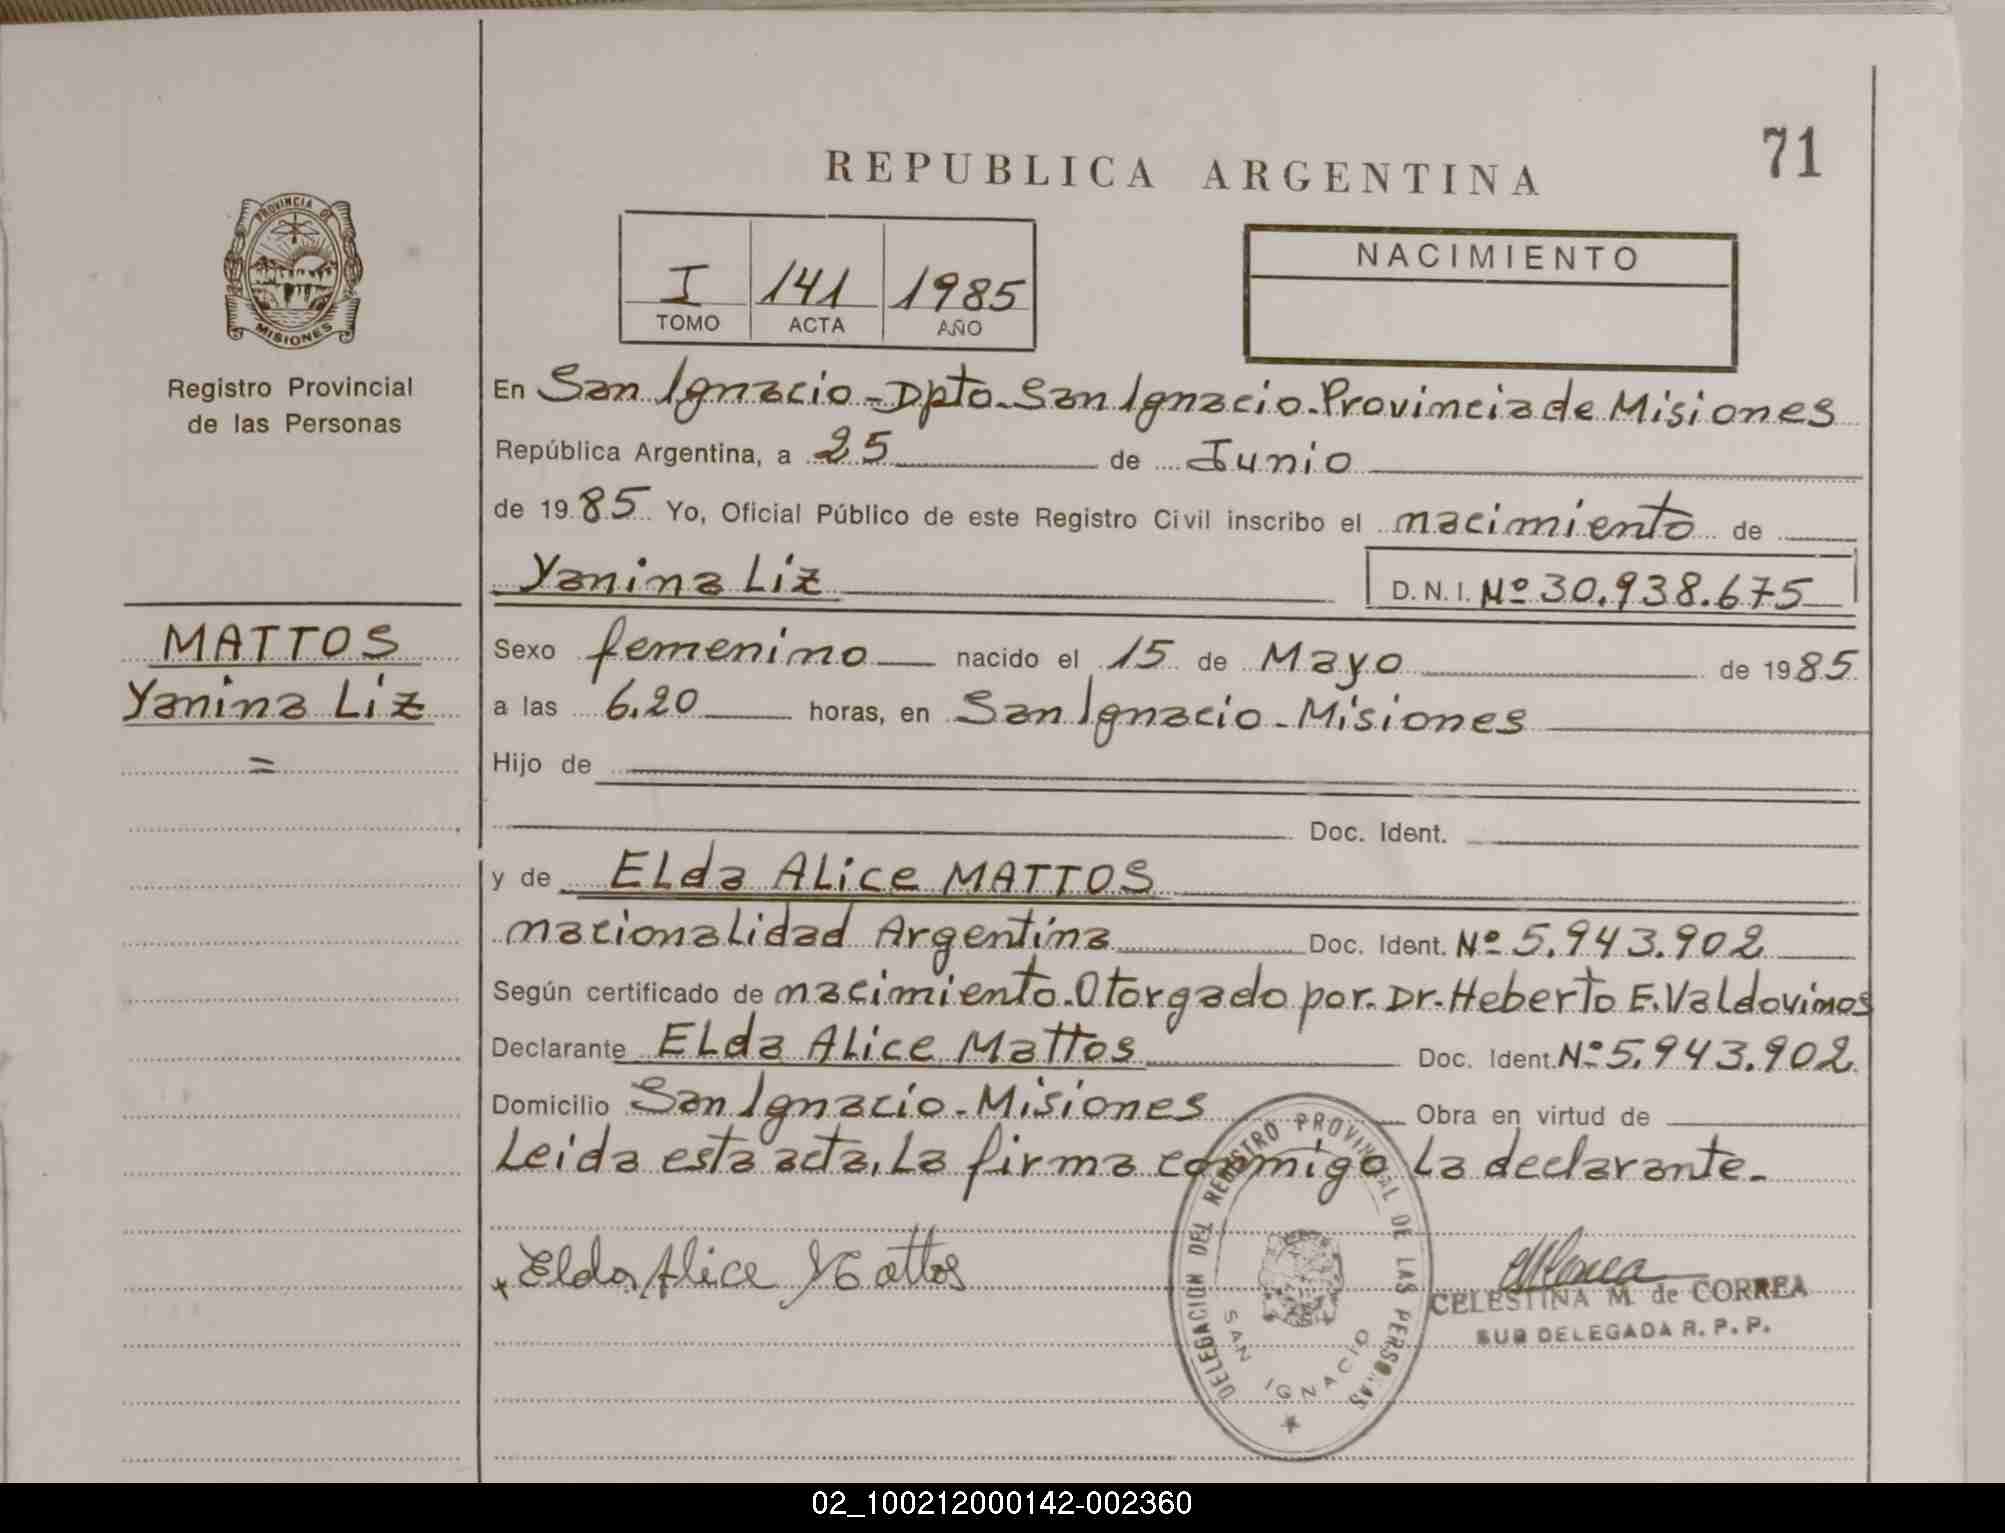 71
REPUBLICA ARGENTINA
PROVINCIA DE
MISIONES
Registro Provincial
de las Personas
I 141 1985
TOMO ACTA AÑO
NACIMIENTO
En San Ignacio - Dpto. San Ignacio. Provincia de Misiones
República Argentina, a 25 de Junio
de 1985 Yo, Oficial Público de este Registro Civil inscribo el nacimiento de
Yanina Liz D.N.I. Nº 30.938.675
MATTOS
Yanina Liz
=
Sexo femenino nacido el 15 de Mayo de 1985
a las 6.20 horas, en San Ignacio - Misiones
Hijo de
Doc. Ident.
y de ELda ALice MATTOS
nacionalidad Argentina Doc. Ident. Nº 5.943.902
Según certificado de nacimiento. Otorgado por. Dr. Heberto E. Valdovinos
Declarante ELda ALice Mattos Doc. Ident. Nº 5.943.902
Domicilio San Ignacio - Misiones Obra en virtud de
Leida esta acta, La firma conmigo La declarante.
x Elda Alice Mattos
DELEGACION DEL REGISTRO PROVINCIAL DE LAS PERSONAS
SAN IGNACIO
CELESTINA M. de CORREA
SUB DELEGADA R. P. P.
02_100212000142-002360